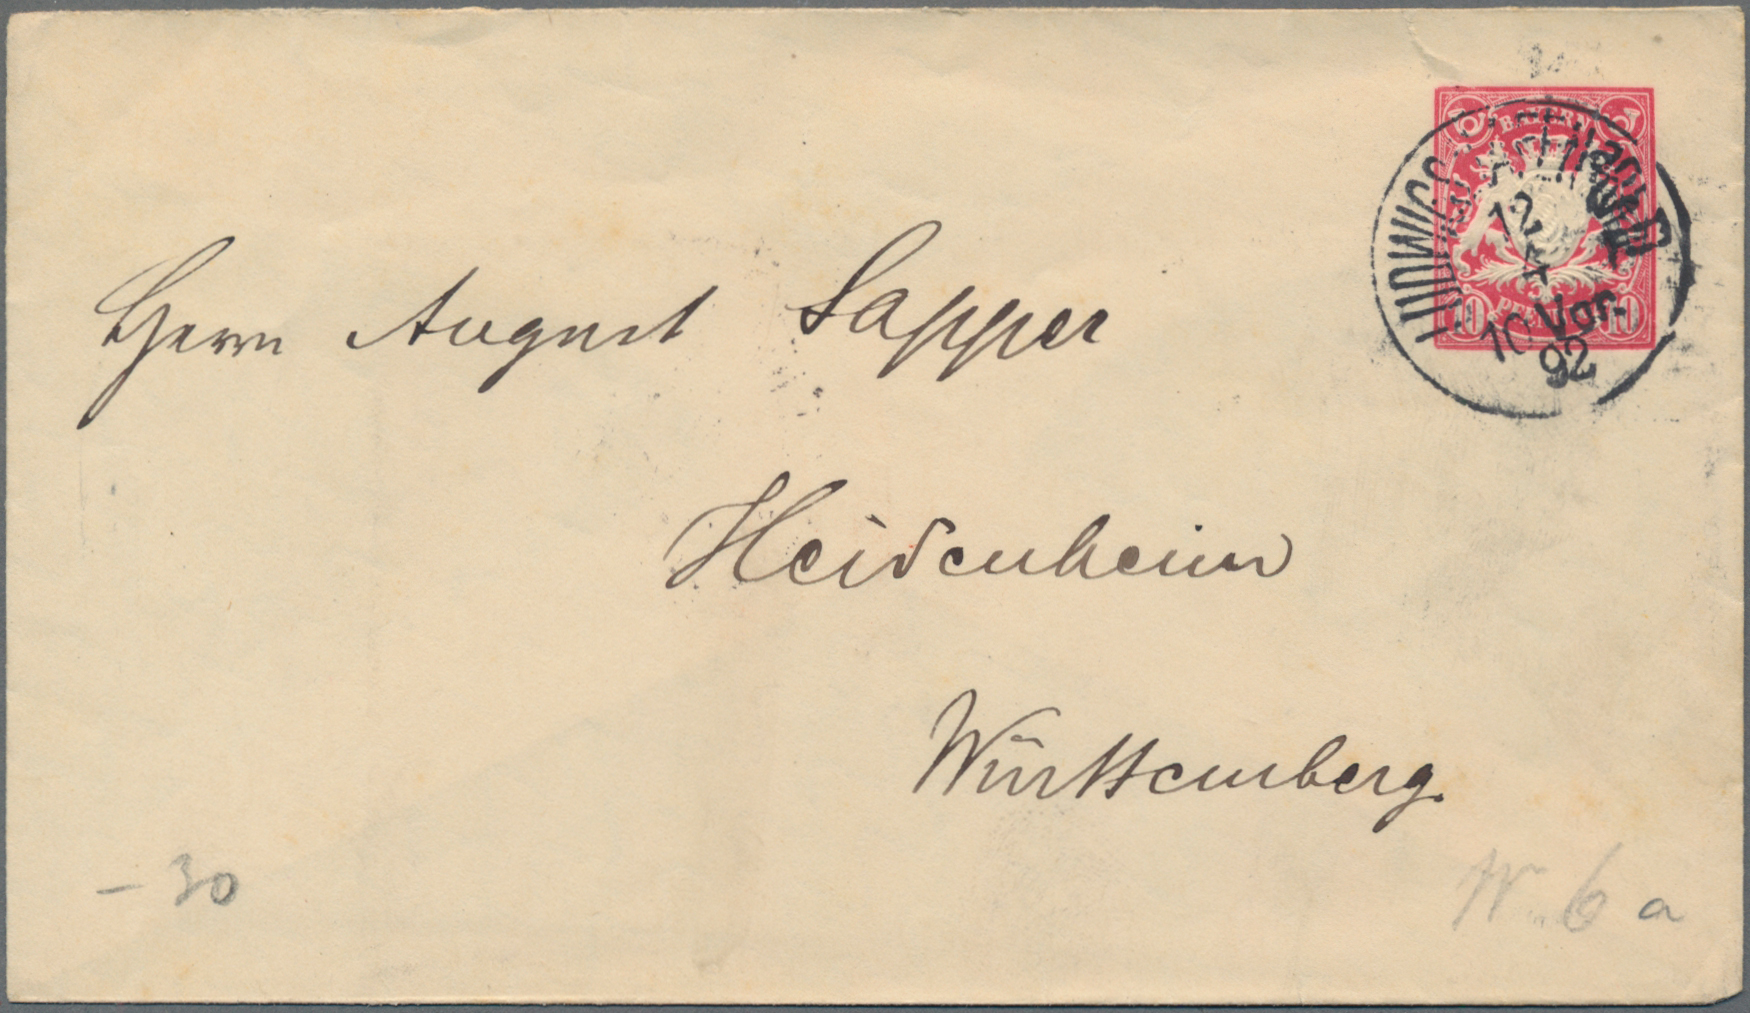 BAYERN
LUDWIGS
12
4
10 Vor.
92
10 10
Herrn August Sapper
Heidenheim
Württemberg.
– 30
6 a